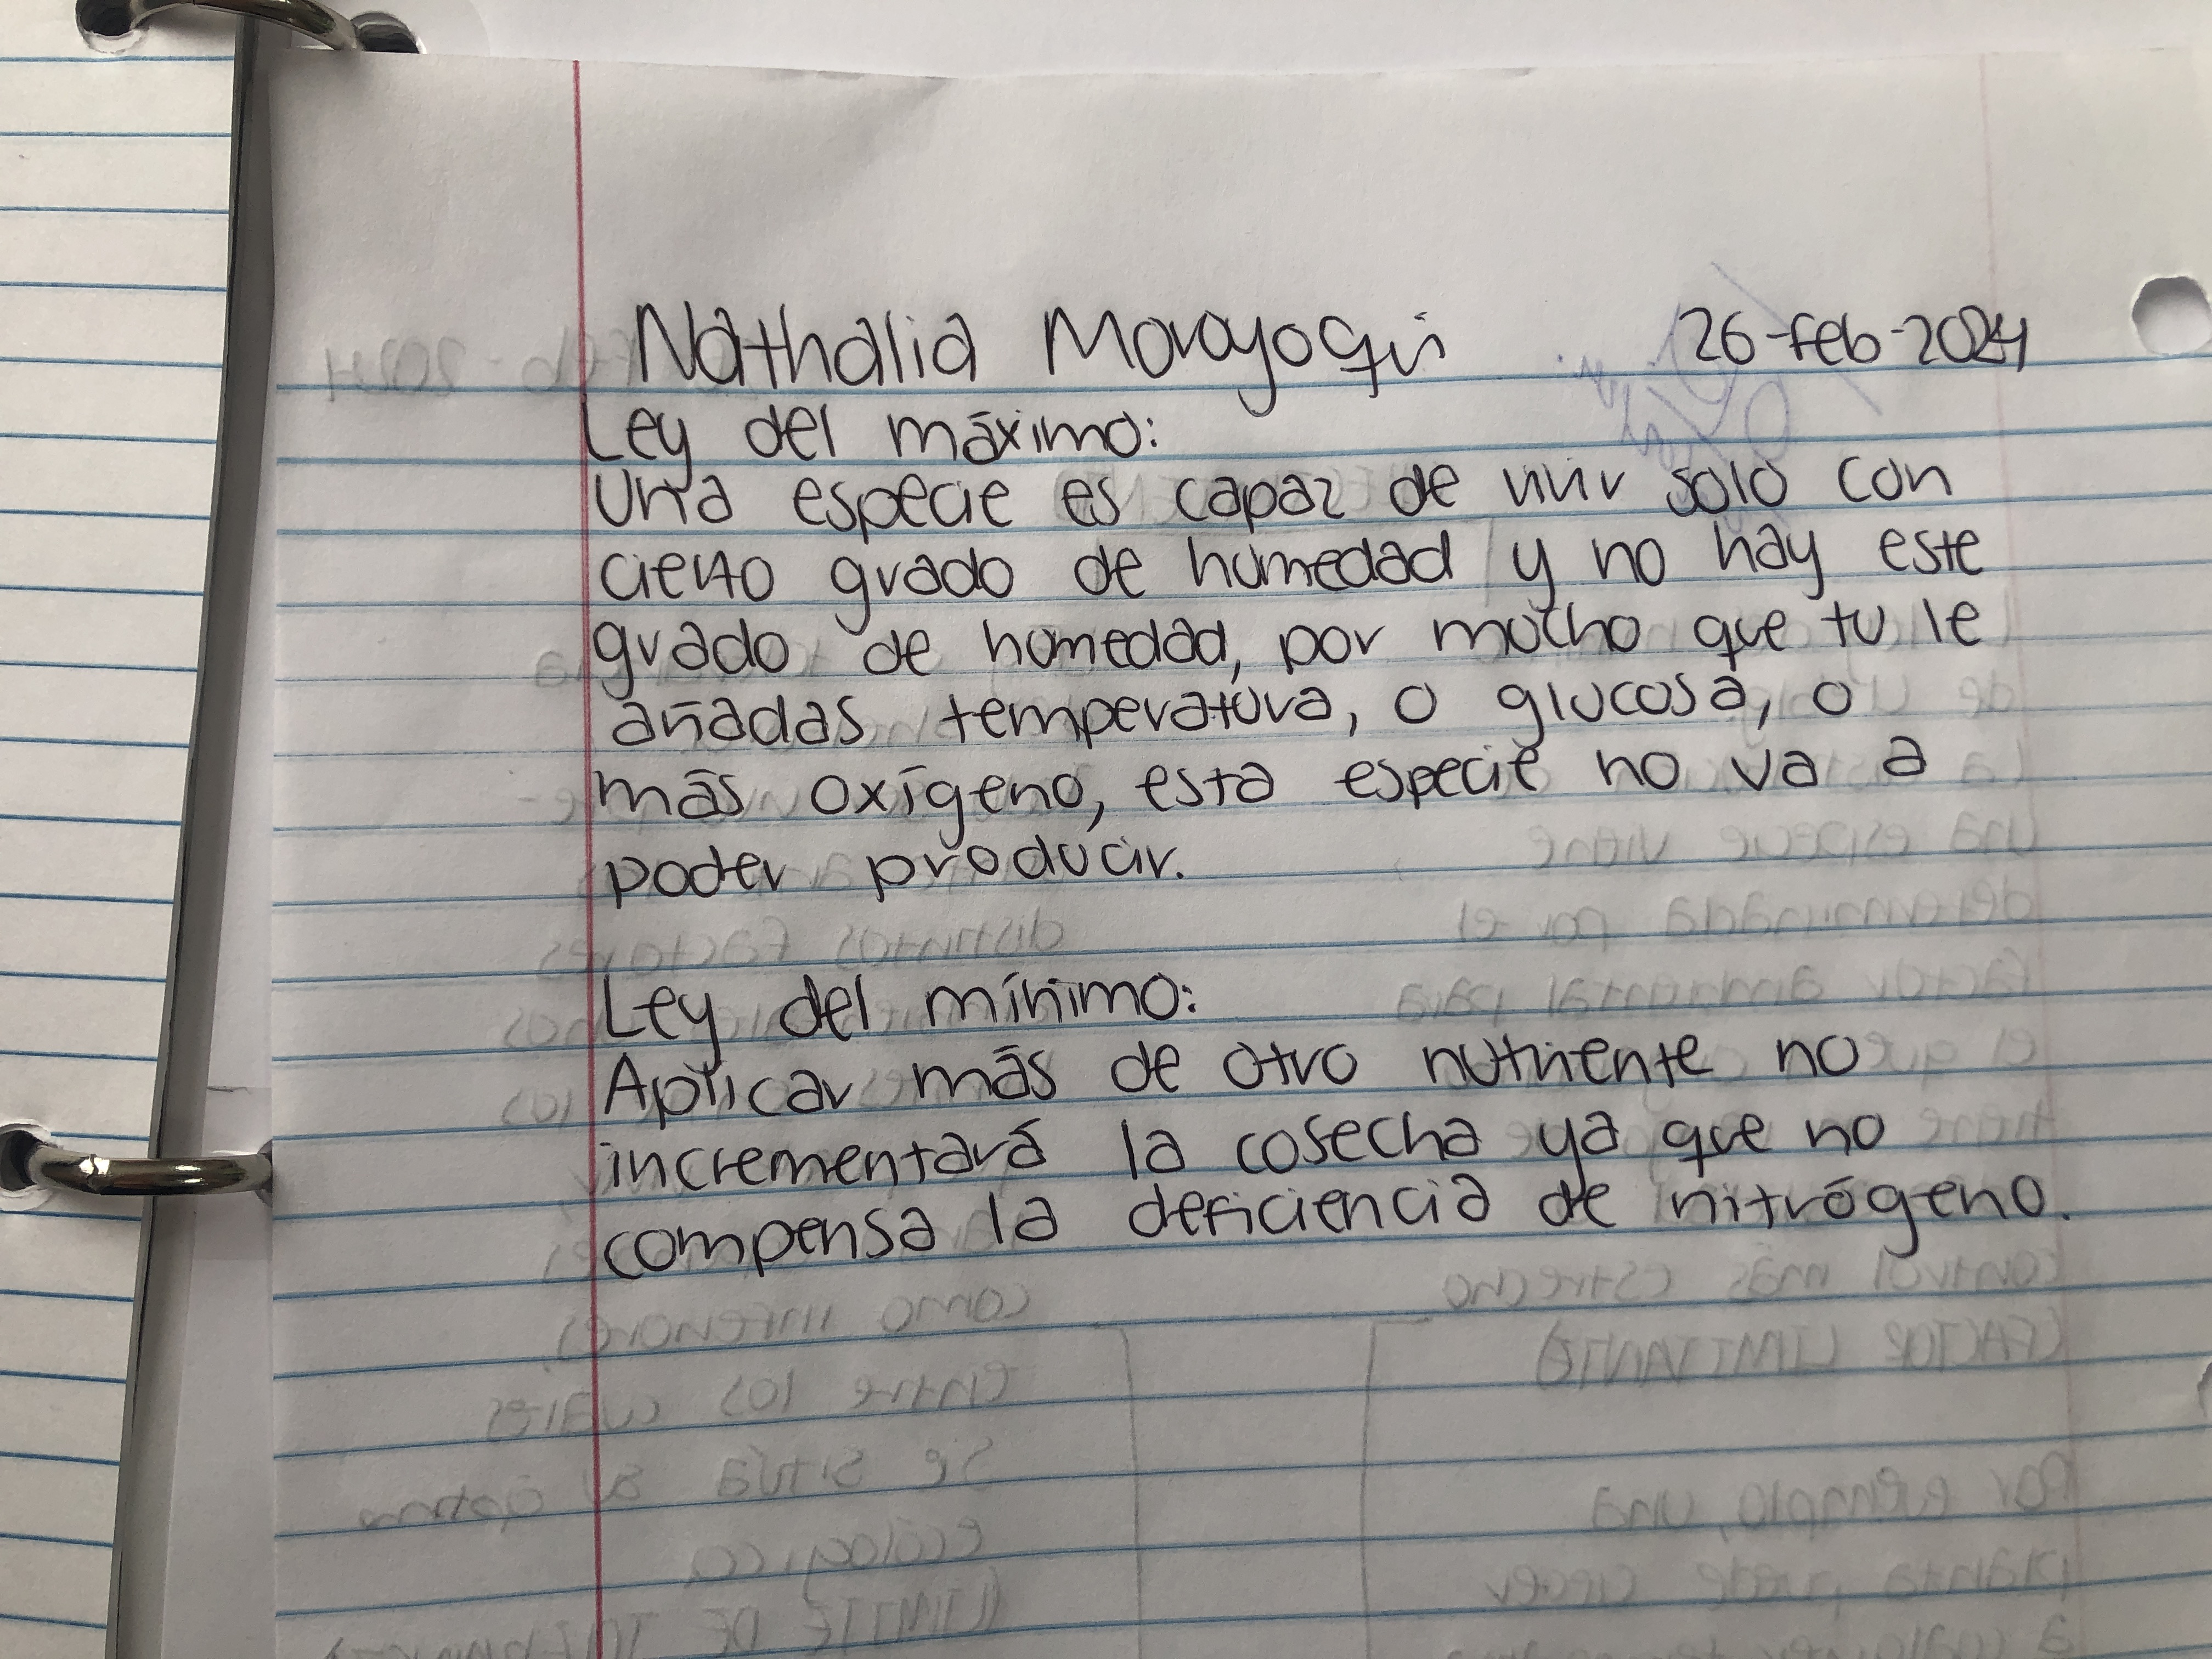 Nathalia Morayoqui 26-feb-2024
Ley del máximo:
Una especie es capaz de vivir solo con
cierto grado de humedad y no hay este
grado de humedad, por mucho que tu le
añadas temperatura, o glucosa, o
más oxígeno, esta especie no va a
poder producir.
Ley del mínimo:
Aplicar más de otro nutriente no
incrementará la cosecha ya que no
compensa la deficiencia de nitrógeno.